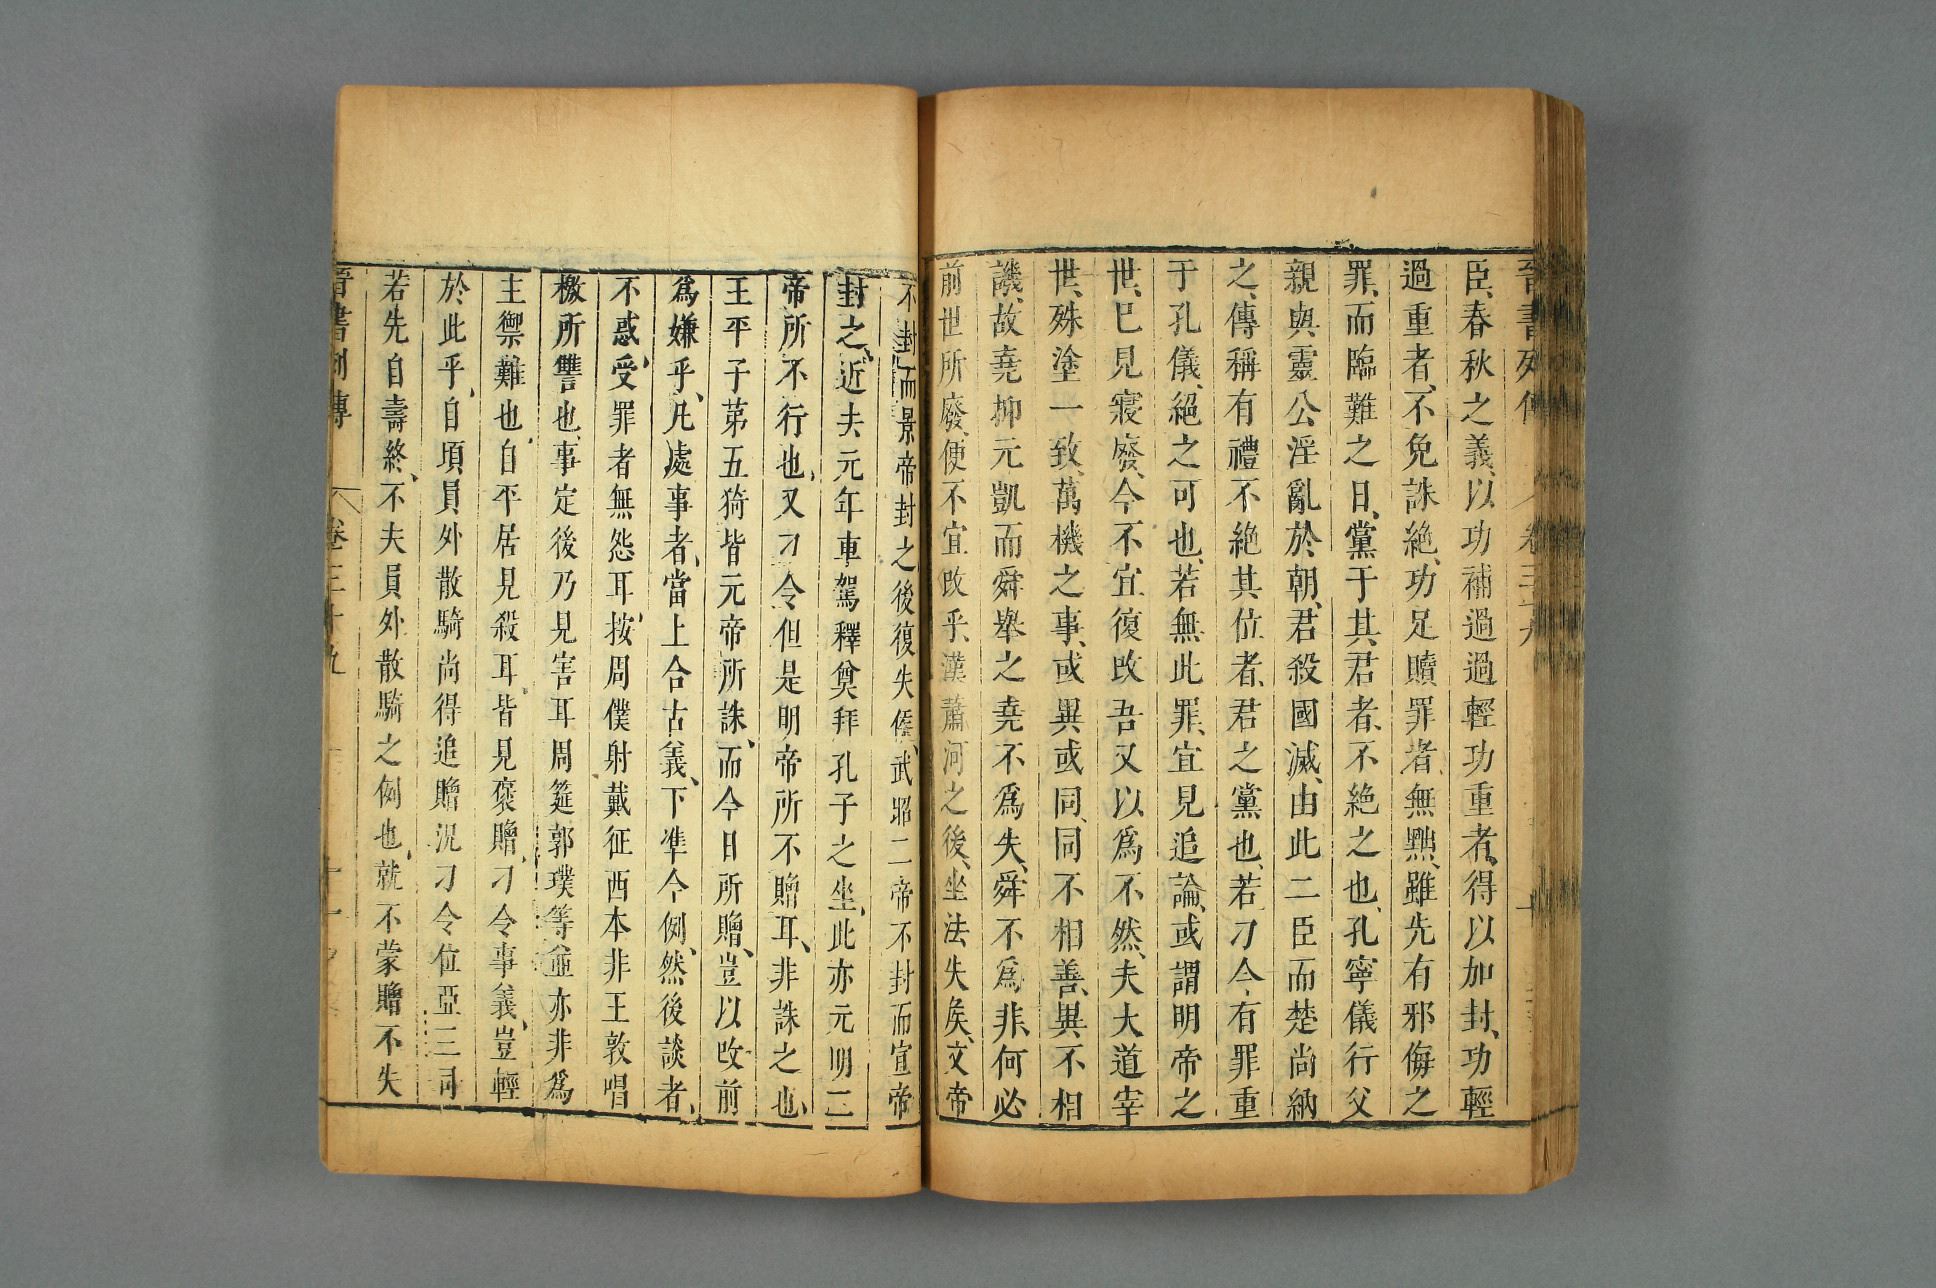 晉書列傳 卷三十九 十
臣、春秋之義、以功補過過輕功重者、得以加封、功輕
過重者、不免誅絶、功足贖罪者、無黜、雖先有邪侮之
罪、而臨難之日、黨于其君者、不絶之也、孔寧儀行父
親與靈公淫亂於朝、君殺國滅、由此二臣而楚尚納
之、傳稱有禮不絶其位者、君之黨也、若刁令有罪重
于孔儀、絕之可也、若無此罪、宜見追論、或謂明帝之
世、已見寢廢、今不宜復改吾又以爲不然、夫大道宰
世、殊塗一致、萬機之事、或異或同、同不相善、異不相
譏、故堯抑元凱而舜舉之堯不爲失、舜不爲非、何必
前世所廢、便不宜改乎、漢蕭何之後、坐法失矦、文帝
不封而景帝封之後復失侯、武昭二帝不封而宣帝
封之、近去元年車駕釋奠拜孔子之坐、此亦元明二
帝、所不行也、又刁令但是明帝所不贈耳、非誅之也、
王平子第五猗皆元帝所誅、而今日所贈、豈以改前
爲嫌乎、凡處事者、當上合古義、下準今例、然後談者、
不惑、受罪者無怨耳、按周僕射戴征西本非王敦唱
檄所讐也、事定後乃見害耳周筵郭璞等並亦非爲
主禦難也、自平居見殺耳、皆見褒贈、刁令事義、豈輕
於此乎、自頃員外散騎尚得追贈況刁令位亞三司
若先自壽終、不失員外散騎之例也、就不蒙贈不失
晉書列傳 卷三十九 十一